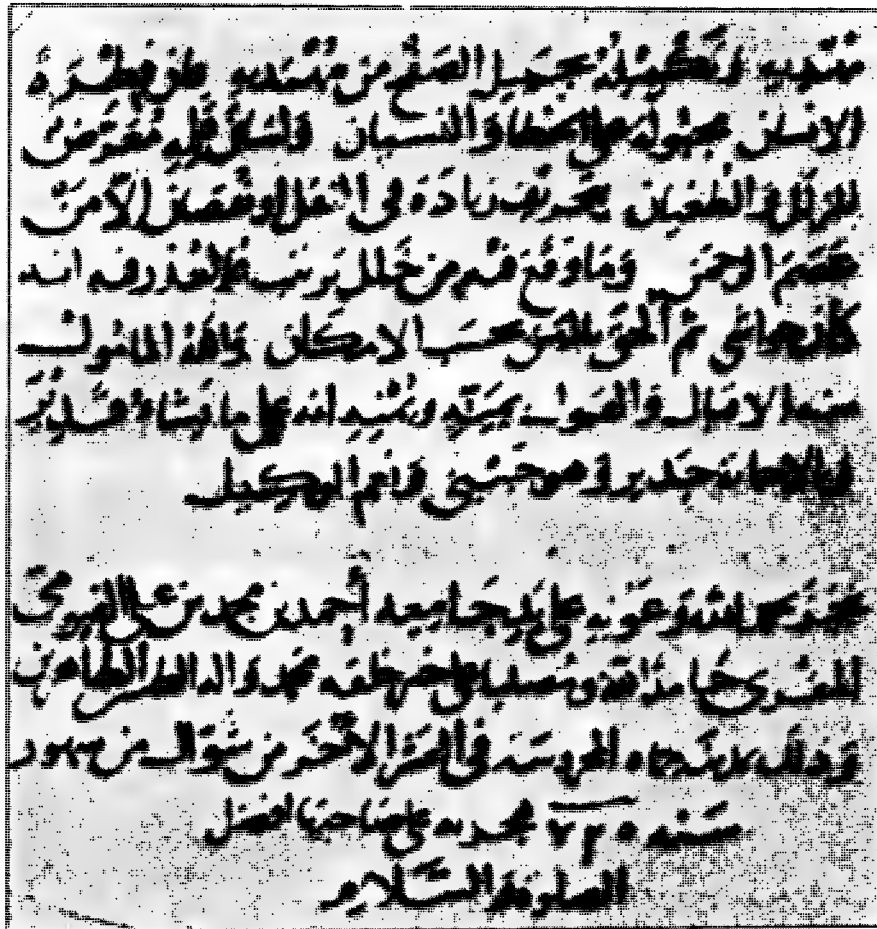 وتكميله بجميل الصفح من فإن فطرة
الإنسان مجبولة على الخطأ والنسيان ولسان قلمه معرض
للزلل والطغيان بتحريف زيادة في النقل أو نقصان إلا من
عصم الرحمن وما وقع فيه من خلل ترتيب فالعذر فيه أنه
كان حواشي ثم ألحق بالمتن بحسب الإمكان والله المأمول
منه الإقبال والصواب بمنّه ويمنه إنه على ما يشاء قدير
وبالإجابة جدير وهو حسبي ونعم الوكيل
نجز بحمد الله وعونه على يد جامعه أحمد بن محمد بن علي الفيومي
المقري حامدا لله ومصليا على خير خلقه محمد وآله الطاهرين
وذلك بمدينة حماه المحروسة في العشر الأخر من شوال من شهور
سنه هجرية على صاحبها أفضل
الصلوة والسلام